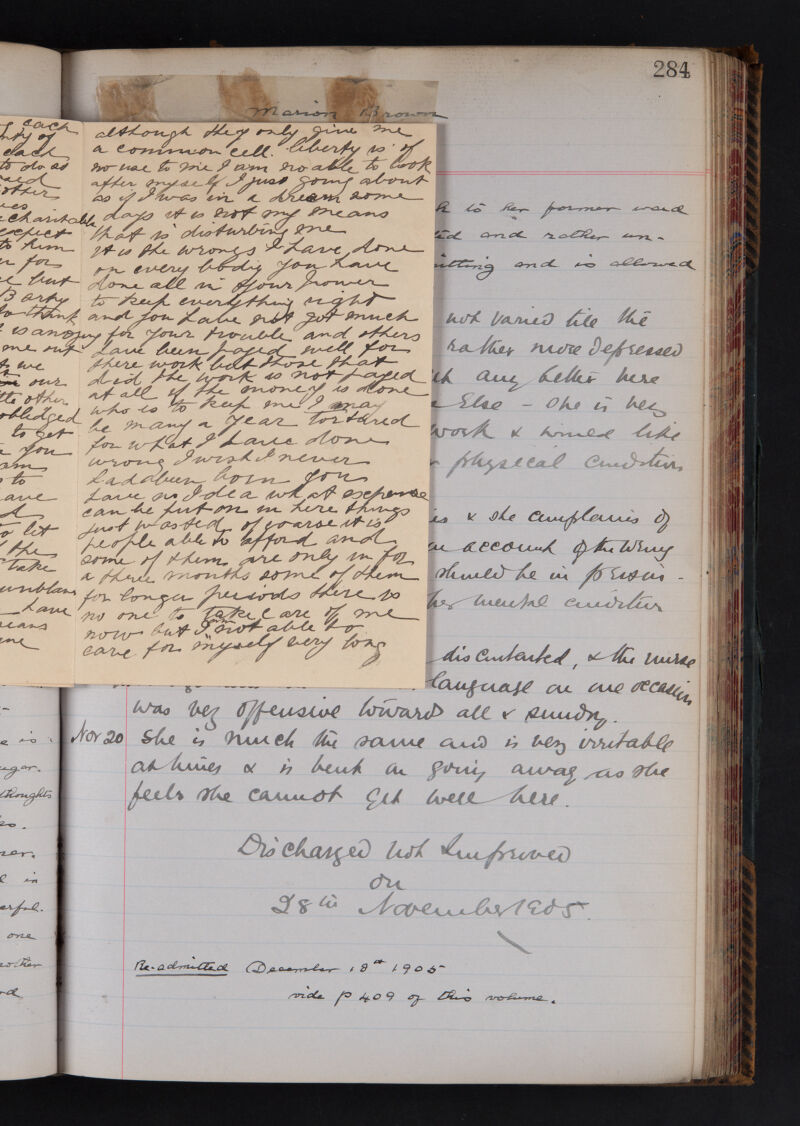 284
Marion Brown
each
although they only give me
a common cell. liberty is of
no use to me I am no able to look
after myself I just going about
as if I was in a dream some
days it is not my means
that is disturbing me
it is the wrongs I have done
on every bodiy you have
done all in your power
to keep everything right
and you have not got much
for your trouble and others
have been payed well for
there work but those that
did the work is not payed
at all if the money is done
who is to keep me I may
be many a year tortured
for what I have done
wrong I wish I never
had abeen born you
have no Idea what expense
can be put on in here things
just wasted of coarse it is
people able to afford and
some of them are only in for
a three months some of them
for longer periods there is
no one to take care of me
now but I am not able to
care for myself very long
each
to do so
others
charitable
expect
to him
for
but
Barty
to think
me out
we
our
other
obledged
to get
you
am
to
have
to let
the
take
have
means
me
to her former ward
and rather un-
sitting and is allowed
not varied till the
rather more depressed
any better here
Else - She is very
work & would like
physical condition
& she complains of
on account of the wrong
should be in prison -
her mental condition
discontented, & the nurse
language on one occasion
was very offensive towards all & sundry.
Nov 20 She is much the same and is very irritable
at times & is bent on going away as she
feels she cannot get well here.
Discharged not Improved
on
28th November 1905.
Re-admitted December 18th 1905
vide p 409 of this volume.
is
thoughts
in
one